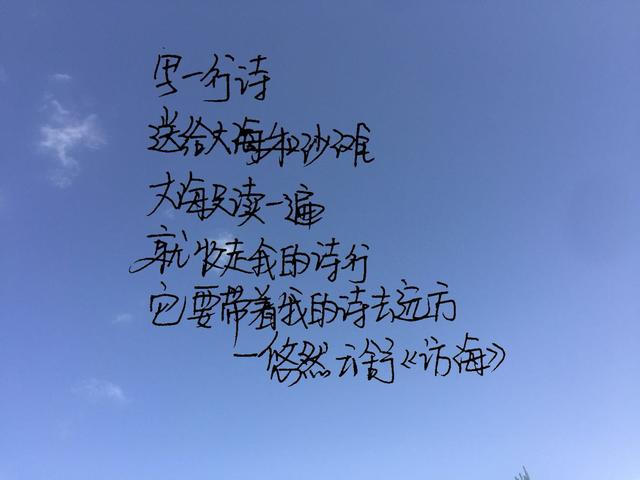 写一行诗
送给大海和沙滩
大海只读一遍
就收走我的诗行
它要带着我的诗去远方
—悠然云舒《访海》